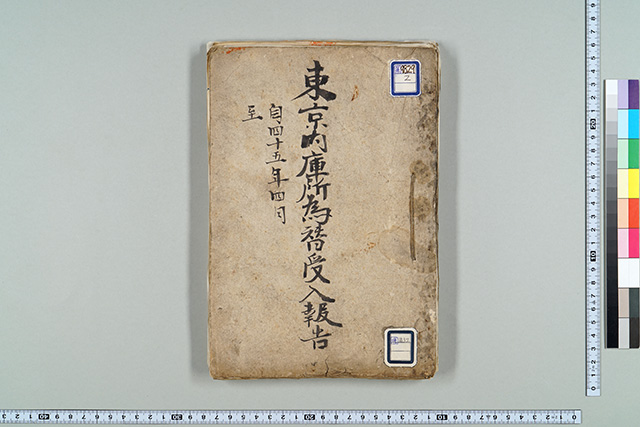 東京内庫所為替受入報告
自四十五年四月
至
9829
2